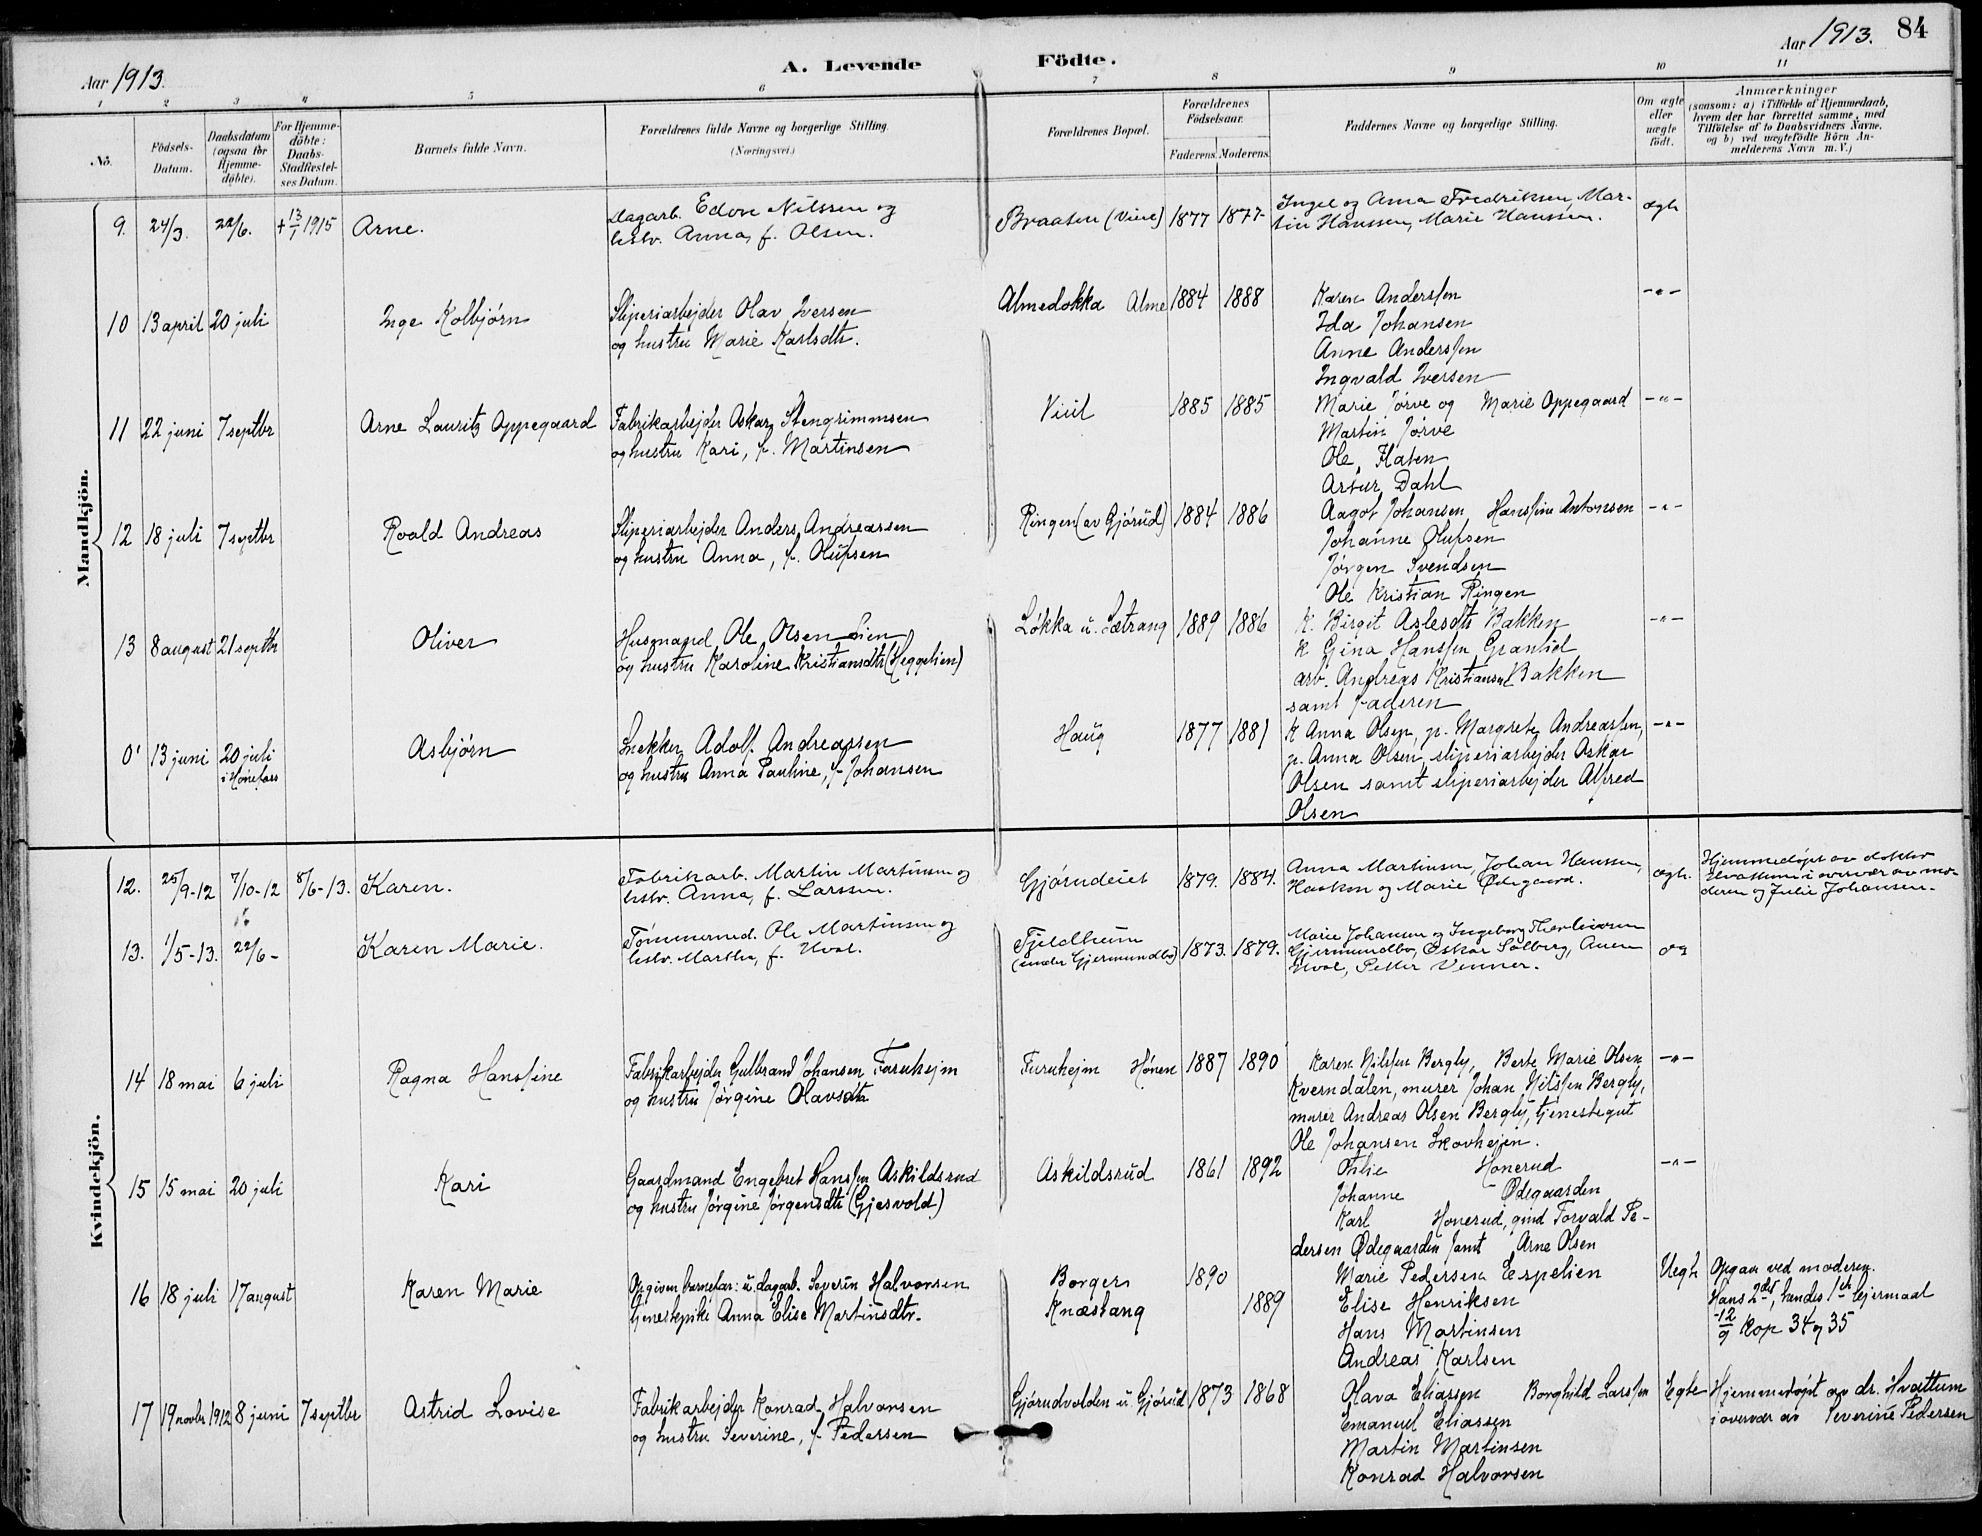 Aar 1913.
A. Levende Födte.
Aar 1913. 84
1 2 3 4 5 6 7 8 9 10 11
No.
Födsels-Datum.
Daabsdatum (ogsaa for Hjemmedøbte).
For Hjemmedöbte: Daabs-Stadfestelses Datum.
Barnets fulde Navn.
Forældrenes fulde Navne og borgerlige Stilling.
(Næringsvei.)
Forældrenes Bopæl.
Forældrenes Födselsaar.
Faderens. Moderens.
Faddernes Navne og borgerlige Stilling.
Om ægte eller uægte födt.
Anmærkninger
(saasom: a) i Tilfælde af Hjemmedaab, hvem der har forrettet samme, med Tilföielse af to Daabsvidners Navne, og b) ved uægtefödte Börn Anmelderens Navn m. V.)
Mandkjön.
9. 24/3. 22/6. + 13/1 1915 Arne.
Dagarb. Edvin Nilssen og
hstr. Anna, f. Olsen.
Braaten (Viul) 1877 1877
Ingel og Anna Fredriksen, Mar-
tin Hanssen, Marie Hanssen.
ægte
10 13 april 20 juli Inge Kolbjørn
Sliperiarbejder Olav Iversen
og hustru Marie Karlsdtr.
Almedokka Alme 1884 1888
Karen Anderssen
Ida Johansen
Anne Anderssen
Ingvald Iversen
-"-
11 22 juni 7 septbr Arne Lauritz Oppegaard
Fabrikarbejder Askar Stengrimmsen
og hustru Kari, f. Martinsen
Viul 1885 1885
Marie Jørve og Marie Oppegaard
Martin Jørve
Ole Flaten
Artur Dahl
-"-
12 18 juli 7 septbr Roald Andreas
Sliperiarbejder Anders Andreassen
og hustru Anna, f. Olufsen
Ringen (av Gjörud) 1884 1886
Aagot Johansen Hanssine Antonsen
Johanne Olufsen
Jørgen Svendsen
Ole Kristian Ringen
-"-
13 8 august 21 septbr Oliver
Husmand Ole Olsen Lien
og hustru Karoline Kristiansdtr (Heggelien)
Løkka u. Sætrang 1889 1886
K. Birgit Aslesdtr Bakken
K Gina Hanssen Granlid
arb. Andreas Kristiansen Bakken
samt faderen
-"-
0' 13 juni 20 juli i Hønefoss Asbjørn
Snekker Adolf Andreassen
og hustru Anna Pauline, f. Johansen
Haug 1877 1881
K Anna Olsen, p. Margrete Andreassen,
p. Anna Olsen, sliperiarbejder Askar
Olsen samt sliperiarbejder Alfred
Olsen
-"-
Kvindekjön.
12. 25/9-12 7/10-12 8/6-13. Karen.
Fabrikarb. Martin Martinsen og
hstr. Anna, f. Larssen.
Gjørudeiet 1879. 1884.
Anna Martinsen, Johan Hanssen,
Haakon og Marie Ødegaard.
ægte.
Hjemmedøpt av doktor
Hvattum i overvær av mo-
deren og Julie Johansen.
13. 1/5-13. 22/6- Karen Marie.
Tömmermd. Ole Martinsen og
hstr. Marthe, f. Hval.
Fjeldheim
(under Gjermundbo) 1873. 1879.
Marie Johansen og Ingeborg
Gjermundbo, Oskar Solberg,
Hval, Petter Venner.
14 18 mai 6 juli Ragna Hanssine
Fabrikarbejder Gulbrand Johansen Furuhejm
og hustru Jørgine Olavsdtr
Furuhejm Hønen 1887 1890
Karen Nilssen Bergby, Berte Marie Olsen
Kverndalen, murer Johan Nilssen Bergby,
murer Andreas Olsen Bergby, tjenestegut
Ole Johansen Skovhejen.
-"-
15 15 mai 20 juli Kari
Gaardmand Engebret Hanssen Askildsrud
og hustru Jørgine Jørgensdtr (Gjesvold)
Askildsrud 1861 1892
Otilie Honerud
Johanne Ødegaarden
Karl Honerud, gmd Torvald Pe-
dersen Ødegaarden samt Arne Olsen
-"-
16 18 juli 17 august Karen Marie
Opgiven barnefar: u. dagarb. Severin Halvorsen
tjenestepike Anna Elise Martinsdtr.
Borger 1890
Knæstang 1889
Marie Pedersen Espelien
Elise Henriksen
Hans Martinsen
Andreas Karlsen
Uegte
Opgav ved moderen.
Hans 2det, hendes 1ste lejermaal
12/9 kop 34 og 35
17 19 novbr 1912 8 juni 7 septbr Astrid Lovise
Fabrikarbejder Konrad Halvorsen
og hustru Severine, f. Pedersen
Gjørudvolden u. Gjørud 1873 1868
Olava Eliassen Borghild Larssen
Emanuel Eliassen
Martin Martinsen
Konrad Halvorsen
Egte
Hjemmedøpt av dr. Hvattum
i overvær av Severine Pedersen